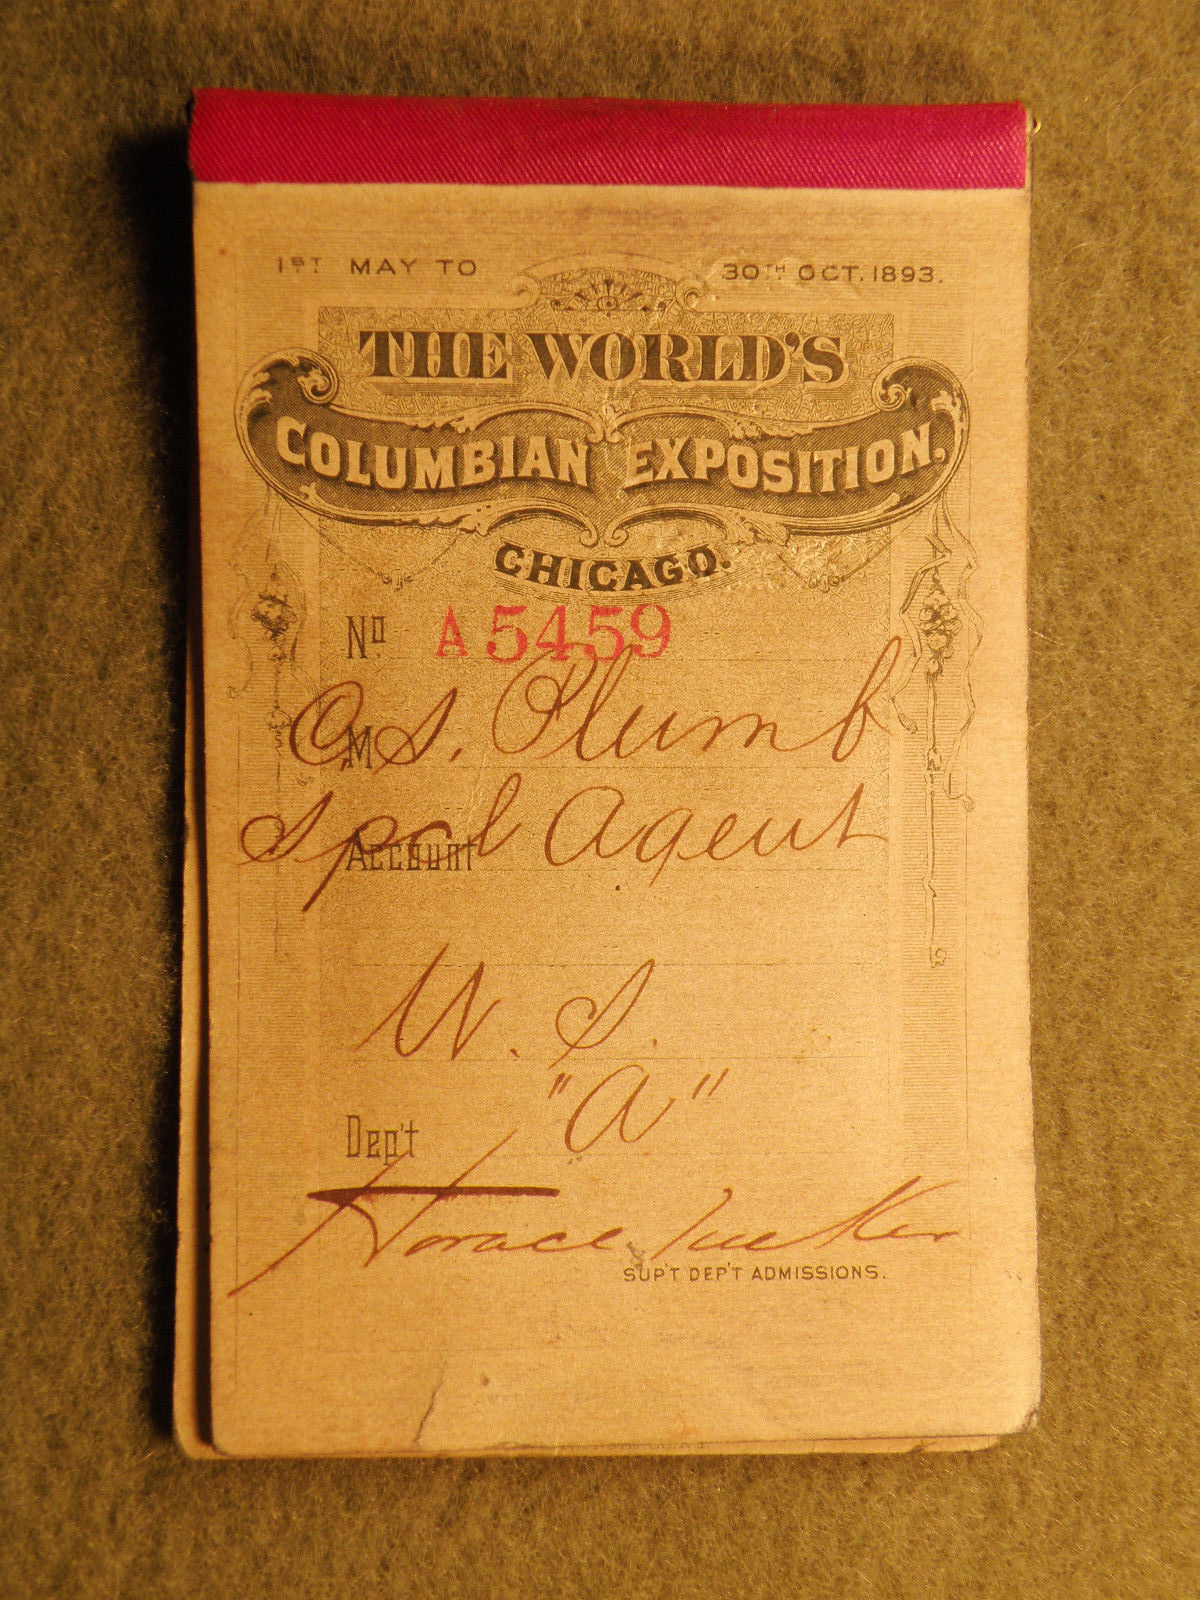 1ST MAY TO 30TH OCT. 1893.
THE WORLD'S
COLUMBIAN EXPOSITION,
CHICAGO.
No A5459
M C. S. Plumb
Account Spcl Agent
U. S.
Dep't "A"
Horace Tucker
SUP'T DEP'T ADMISSIONS.